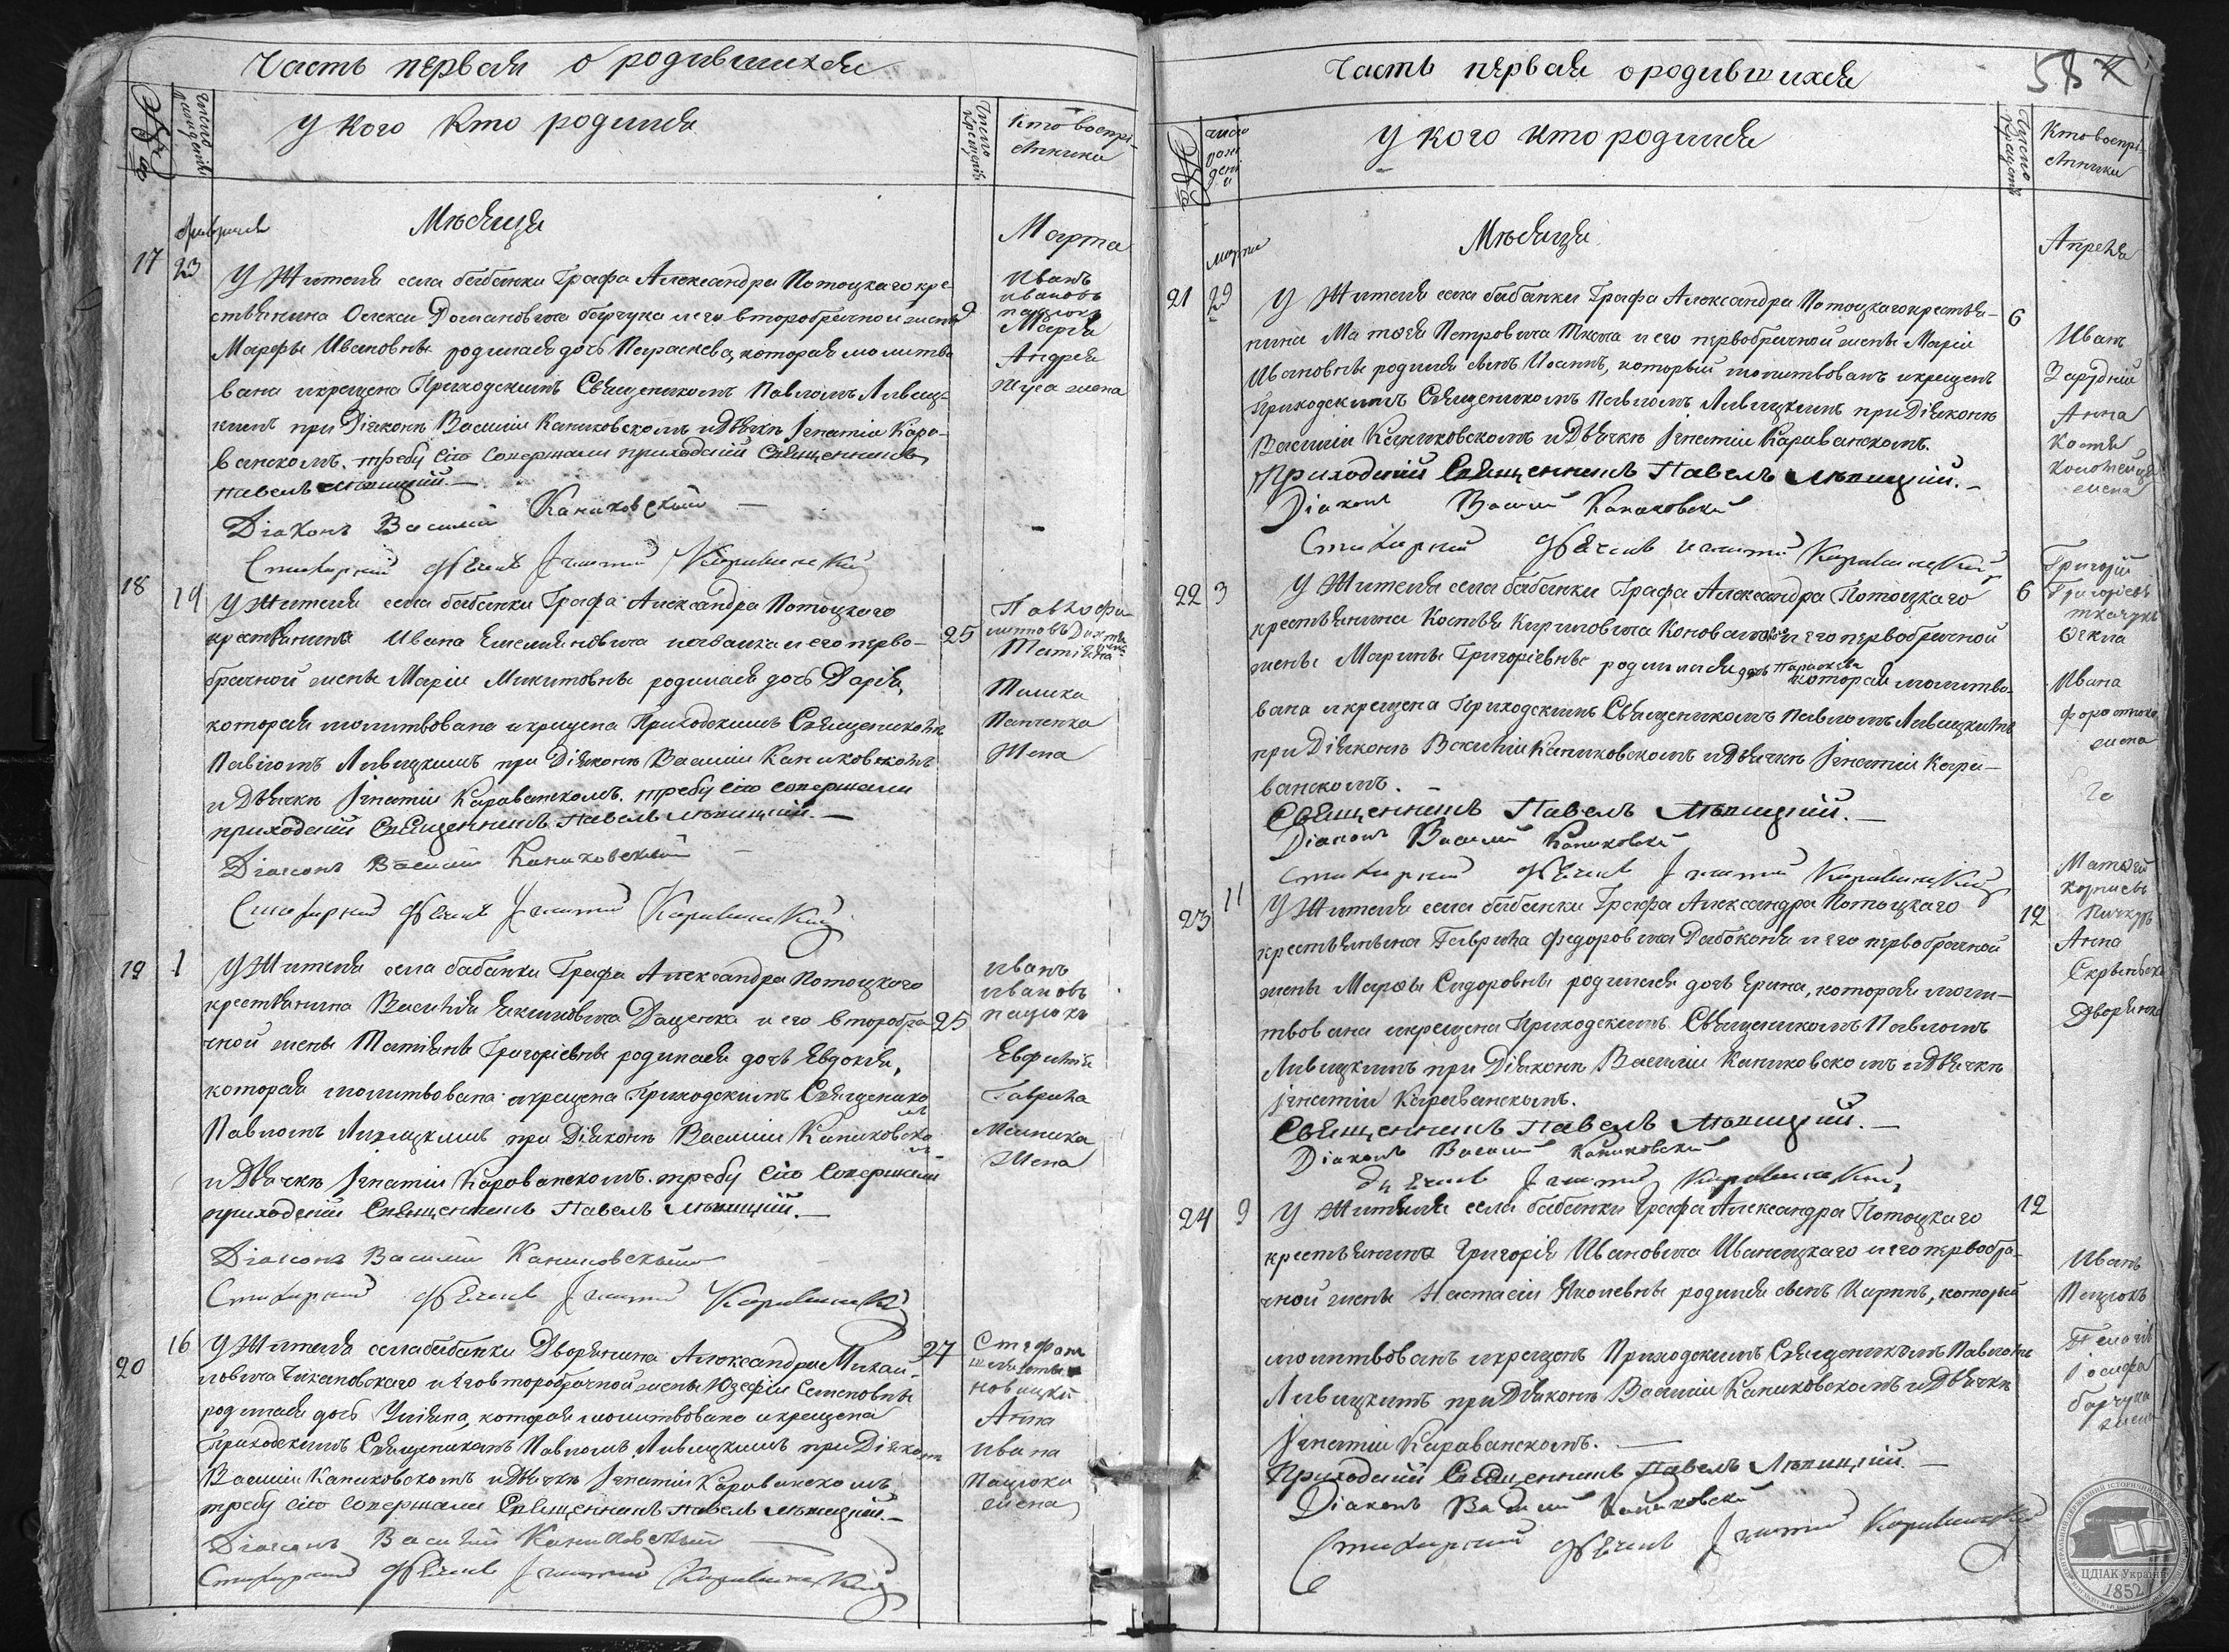 Часть первая о родившихся
Число рожденія
У кого кто родился
Число крещенія
Кто воспрі-
емники
Мѣсяца
Марта
17
23
У Жителя села бабанки Графа Александра Потоцкаго кре-
стьянина Олекси Домановича барчука и его второбрачной жены
9
Марфы Ивановны родилась дочь Параскева, которая молитво
вана и крещена Приходскимъ Священикомъ Павломъ Ливиц-
кимъ при Діаконѣ Василіи Каниковскомъ и Дьячкѣ Ігнатіи Кара-
ванскомъ. требу сію совершали приходскій Священникъ
Павелъ Лѣвицкій.
Діаконъ Василій Каниковскій
Стихарный Дьячекъ Ігнатій Караванскій
Иванъ
Ивановъ
пацюкъ
Марія
Андрея
жена
18
19
У Жителя села бабанки Графа Александра Потоцкаго
крестьянина Ивана Емелиановича и его перво-
25
брачной жены Маріи Микитовны родилась дочь Дарія,
которая молитвована и крещена Приходскимъ Священикомъ
Павломъ Ливицкимъ при Діаконѣ Василіи Каниковскомъ
и Дьячкѣ Ігнатіи Караванскомъ. требу сію совершали
приходскій Священникъ Павелъ Лѣвицкій.
Діаконъ Василій Каниковскій
Стихарный Дьячекъ Ігнатій Караванскій
Татіяна
Тимка
Панченка
Жена
19
1
У Жителя села бабанки Графа Александра Потоцкого
крестьянина Василія Екимовича Даценка и его второбра
25
чной жены Татіяны Григоріевны родилась дочь Евдокія,
которая молитвована и крещена Приходскимъ Священико
мъ
Павломъ Ливицкимъ при Діаконѣ Василіи Каниковско
мъ
и Дьячкѣ Ігнатіи Караванскомъ. требу сію совершали
приходскій Священникъ Павелъ Лѣвицкій.
Діаконъ Василій Каниковскій
Стихарный Дьячекъ Ігнатій Караванскій
Иванъ
Ивановъ
пацюкъ
Евфимія
Гаврила
Мельника
Жена
20
16
У Жителя села бабанки Дворянина Александра Михай-
ловича и его второбрачной жены Юзефіи Семеновны
27
родилась дочь Уліяна, которая молитвована и крещена
Приходскимъ Священикомъ Павломъ Ливицкимъ при Діакон
Василіи Каниковскомъ и Дьячкѣ Ігнатіи Караванскомъ
требу сію совершали Священникъ Павелъ Лѣвицкій.
Діаконъ Василій Каниковскій
Стихарный Дьячекъ Ігнатій Караванскій
Стефан
новицкій
Анна
Ивана
Пацюка
жена
Часть первая о родившихся
58
число рожденіи
У кого кто родился
Число крещенія
Кто воспрі-
емники
Мѣсяца
Апреля
марта
21
29
У Жителя села бабанки Графа Александра Потоцкаго крестья-
6
нина Матѳея Петровича Ткача и его первобрачной жены Маріи
Ивановны родился сынъ Иоаннъ, который молитвованъ и крещенъ
Приходскимъ Священикомъ Павломъ Ливицкимъ при Діаконѣ
Василіи Каниковскомъ и Дьячкѣ Ігнатіи Караванскомъ.
Приходскій Священникъ Павелъ Лѣвицкій.
Діаконъ Василій Каниковскій
Стихарный Дьячекъ Игнатій Караванскій
Иван
Зарудній
Анна
Костя
жена
22
3
У Жителя села бабанки Графа Александра Потоцкаго
6
крестьянина Костья Кириловича Коновала и его первобрачной
жены Марины Григоріевны родилась дочь Параскева которая молитво-
вана и крещена Приходскимъ Священикомъ Павломъ Ливицкимъ
при Діаконѣ Василіи Каниковскомъ и Дьячкѣ Ігнатіи Кара-
ванскомъ.
Священникъ Павелъ Лѣвицкій.
Діаконъ Василій Каниковскій
Стихарный Дьячекъ Ігнатій Караванскій
Григорій
Григоріевъ
ткачукъ
Ѳекла
Ивана
жена
23
11
У Жителя села бабанки Графа Александра Потоцкаго
12
крестьянина Гаврила Федоровича и его первобрачной
жены Марѳы Сидоровны родилася дочь Ерина, которая моли-
твована и крещена Приходскимъ Священикомъ Павломъ
Ливицкимъ при Діаконѣ Василіи Каниковскомъ и Дьячкѣ
Ігнатіи Караванскомъ.
Священникъ Павелъ Лѣвицкій.
Діаконъ Василій Каниковскій
Дьячекъ Ігнатій Караванскій
Матѳей
корніевъ
Анна
Дворянка
24
9
У Жителя села бабанки Графа Александра Потоцкаго
12
крестьянина Григорія Ивановича Иваницкаго и его первобра-
чной жены Настасіи Яковлевны родился сынъ Карпъ, который
молитвованъ и крещенъ Приходскимъ Священикомъ Павломъ
Ливицкимъ при Діаконѣ Василіи Каниковскомъ и Дьячкѣ
Ігнатіи Караванскомъ.
Приходскій Священникъ Павелъ Лѣвицкій.
Діаконъ Василій Каниковскій
Стихарный Дьячекъ Ігнатій Караванскій
Иванъ
Пацюкъ
Іосифа
барчука
жена
ЦДІАК України
1852